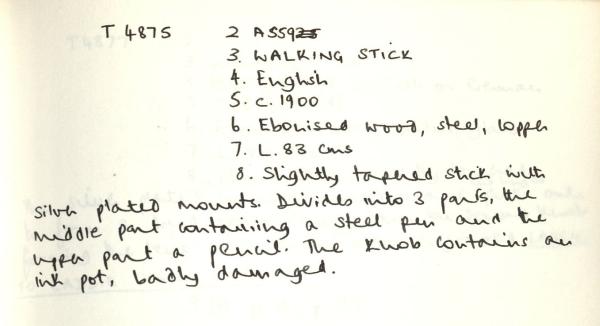 T 4875 2 A5592
3. WALKING STICK
4. English
5. c. 1900
6. Ebonised wood, steel, copper
7. L. 83 cms
8. Slightly tapered stick with
silver plated mounts. Divides into 3 parts, the
middle part containing a steel pen and the
upper part a pencil. The knob contains an
ink pot, badly damaged.